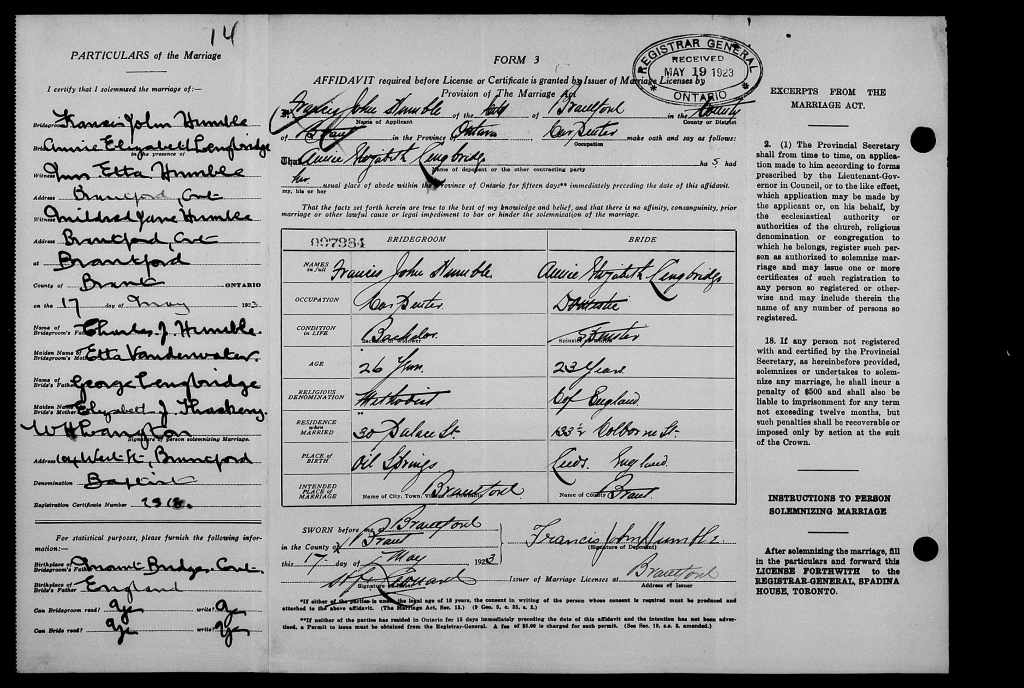 14
PARTICULARS of the Marriage
I certify that I solemnized the marriage of:—
Bridegroom Francis John Humble
Bride Annie Elizabeth Lengbridge
In the presence of
Witness Etta Humble
Brantford, Ont
Witness Mildred Jane Humble
Address Brantford, Ont
at Brantford
County of Brant ONTARIO
on the 17 day of May 1923
Name of Bridegroom's Father Charles J. Humble.
Maiden Name of Bridegroom's Mother Etta Vanderwater.
Name of Bride's Father George Lengbridge
Maiden Name of Bride's Mother Elizabeth J. Thackery.
W H Langton
Signature of person solemnizing Marriage.
Address West St, Brantford
Denomination Baptist
Registration Certificate Number
For statistical purposes, please furnish the following information:—
Birthplace of Bridegroom's Father Mount Bridges. Ont.
Birthplace of Bride's Father England
Can Bridegroom read? Yes write? Yes
Can Bride read? Yes write? Yes
FORM 3
REGISTRAR GENERAL
RECEIVED
MAY 19 1923
ONTARIO
AFFIDAVIT required before License or Certificate is granted by Issuer of Marriage Licenses by
Provision of The Marriage Act
I, Francis John Humble of the City of Brantford in the County
Name of Applicant County or District
of Brant in the Province Ontario Carpenter make oath and say as follows:
Occupation
That Annie Elizabeth Lengbridge has had
Name of deponent or the other contracting party
her usual place of abode within the Province of Ontario for fifteen days** immediately preceding the date of this affidavit.
my, his or her
That the facts set forth herein are to the best of my knowledge and belief, and that there is no affinity, consanguinity, prior
marriage or other lawful cause or legal impediment to bar or hinder the solemnization of the marriage.
007984 BRIDEGROOM BRIDE
NAMES in full Francis John Humble Annie Elizabeth Lengbridge
OCCUPATION Carpenter Domestic
CONDITION IN LIFE Bachelor Spinster
AGE 26 Years 23 Years
RELIGIOUS DENOMINATION Methodist C of England
RESIDENCE when MARRIED 30 St. 133½ Colborne St.
PLACE OF BIRTH Oil Springs Leeds. England.
INTENDED PLACE OF MARRIAGE Name of City, Town, Brantford Name of County Brant.
SWORN before me Brantford
in the County of Brant Francis John Humble
(Signature of Deponent)
this 17 day of May 1923
Leonard Issuer of Marriage Licenses at Brantford
Signature Address of Issuer
*If either of the parties is under the legal age of 18 years, the consent in writing of the person whose consent is required must be produced and
attached to the above affidavit. (The Marriage Act, Sec. 15.) (9 Geo. 5, c. 35, s. 2.)
**If neither of the parties has resided in Ontario for 15 days immediately preceding the date of this affidavit and the intention has not been advertised,
a Permit to issue must be obtained from the Registrar-General. A fee of $5.00 is charged for such permit. (See Sec. 19, s.s. 2. amended.)
EXCERPTS FROM THE
MARRIAGE ACT.
2. (1) The Provincial Secretary
shall from time to time, on application
made to him according to forms
prescribed by the Lieutenant-Governor
in Council, or to the like effect,
which application may be made by
the applicant or, on his behalf, by
the ecclesiastical authority or
authorities of the church, religious
denomination or congregation to
which he belongs, register such person
as authorized to solemnize marriage
and may issue one or more
certificates of such registration to
any person so registered or otherwise
and may include therein the
name of any number of persons so
registered.
18. If any person not registered
with and certified by the Provincial
Secretary, as hereinbefore provided,
solemnizes or undertakes to solemnize
any marriage, he shall incur a
penalty of $500 and shall also be
liable to imprisonment for any term
not exceeding twelve months, but
such penalties shall be recoverable or
imposed only by action at the suit
of the Crown.
INSTRUCTIONS TO PERSON
SOLEMNIZING MARRIAGE
After solemnizing the marriage, fill
in the particulars and forward this
LICENSE FORTHWITH to the
REGISTRAR-GENERAL, SPADINA
HOUSE, TORONTO.